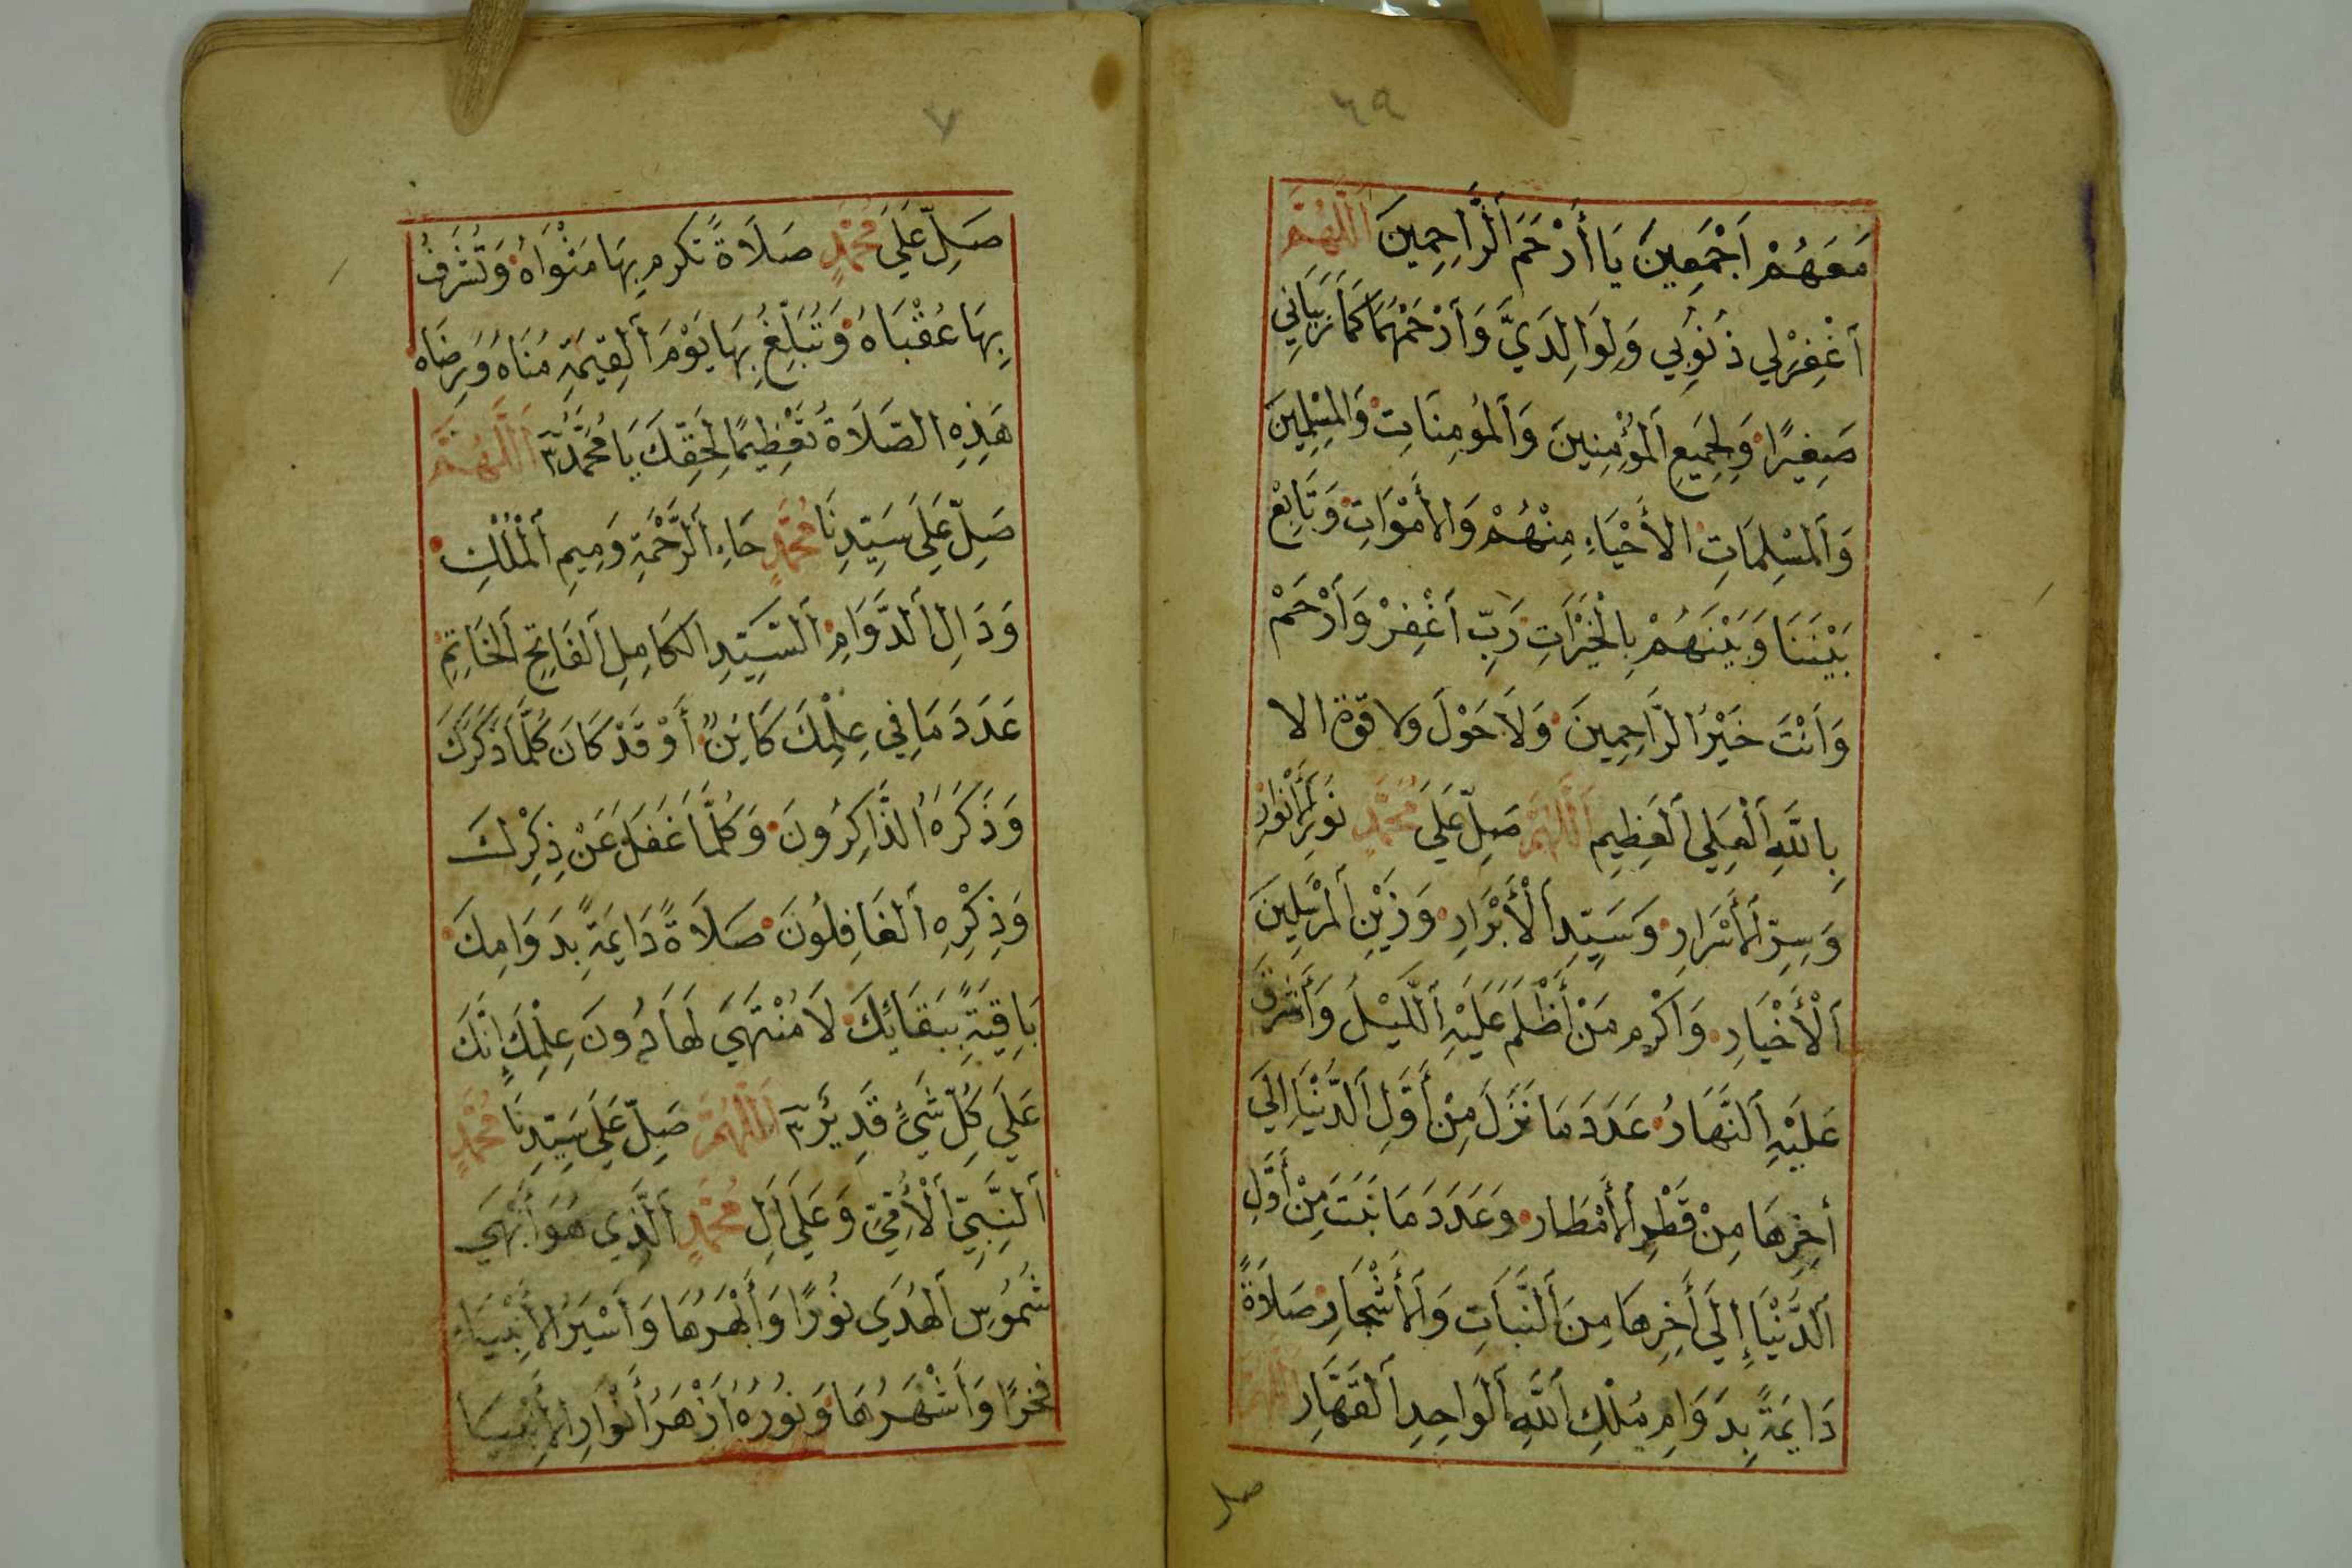 ٦٩
مَعَهُمْ اَجْمَعِينَ يَا أَرْحَمَ الرَّاحِمِينَ اَللّٰهُمَّ
اَغْفِرْ لِي ذُنُوبِي وَلِوَالِدَيَّ وَاَرْحَمْهُمَا كَمَا رَبَّيَانِي
صَغِيرًا وَلِجَمِيعِ اَلمُؤْمِنِينَ وَاَلمُؤمِنَاتِ وَالمُسْلِمِينَ
وَاَلمسْلِمَاتِ الأَحْيَاءِ مِنْهُمْ وَالأَمْوَاتِ وَتَابِعْ
بَيْنَنَا وَبَيْنَهُمْ بِالْخَيْرَاتِ رَبِّ اَغْفِرْ وَاَرْحَمْ
وَاَنْتَ خَيْرُ الرَّاحِمِينَ وَلَاَ حَوْلَ ولا قوة الا
بِاللَّهِ اَلْعَلِي اَلعَظِيمِ اَللّٰهُمَّ صَلِّ عَلَي مُحَمَّدٍ نُورِ اَلأَنْوَارِ
وَسِرِّ اَلأَسْرَارِ وَسَيِّدِ اَلْأَبْرَارِ وَزَيْنِ اَلمُرْسَلِينَ
اَلْأَخْيَارِ وَاَكْرم مَنْ أَظْلَمَ عَلَيْهِ اَللَّيْلُ وَأَشْرَقَ
عَلَيْهِ اَلنَّهَارُ عَدَدَ مَا نَزَلَ مِنْ أَوَّلِ اَلدُّنْيَا اِلَي
أخِرِهَا مِنْ قَطْرِ اَلأَمْطَار وَعَدَدَ مَا نَبَتَ مِنْ أَوَّلِ
اَلدُّنْيَا إِلَي أَخِرِهَا مِنَ اَلنَّبَاتِ وَاَلأَشْجَارِ صَلَاَةً
دَايمَةً بِدَوَامِ مُلْكِ اَللَّهِ اَلوَاحِدِ اَلقَهَّارِ اَللّٰهُمَّ
صل
٧
صَلِّ عَلَي مُحَمَّدٍ صَلَاةً تكْرم بِهَا مَثْوَاهُ وَتُشَرِّفُ
بِهَا عُقْبَاهُ وَتُبَلِّغُ بِهَا يَوْمَ اَلقِيمَةِ مُنَاهُ وَرِضَاه
هَذِهِ الصَّلَاَةُ تَعْظِيمًا لِحَقِّكَ يَا مُحَمَّدُ ٣ اَللّٰهُمَّ
صَلِّ عَلَي سَيِّدِنَا مُحَمَّدٍ حَاءِ اَلرَّحْمَةِ وَمِيمِ اَلْمُلْكِ
وَدَالِ اَلدَّوَامِ اَلسَّيِّدِ الكَامِلِ اَلفَاتِحِ اَلخَاتِمِ
عَدَدَ مَا فِي عِلْمِكَ كَايِنٌ أَوْ قَدْ كَانَ كُلَّمَا ذَكَرَكَ
وَذَكَرَهُ الذَّاكِرُونَ وَكُلَّمَا غَفَلَ عَنْ ذِكْرِكَ
وَذِكْرِهِ اَلغَافِلُونَ صَلَاَةً دَايمَةً بِدَوَامِكَ
بَاقِيَةً بِبَقَائِكَ لَا مُنْتَهَي لَهَا دُونَ عِلْمِكَ إِنَّكَ
عَلَي كُلِّ شَيْءٍ قَدِيرٌ ٣ اَللّٰهُمَّ صَلِّ عَلَي سَيِّدِنَا مُحَمَّدٍ
اَلنَّبِيِّ اَلْأُمِّيِّ وَعَلَي اَلِ مُحَمَّدٍ اَلَّذِي هُوَ أَبْهَي
شُمُوسِ اَلهُدَي نُورًا وَأَبْهَرُهَا وَاَسْيَرُ الأَنْبِيَاءِ
فخرًا وَاَشْهَرُهَا وَنُورُهُ اَزْهَرُ أَنْوَارِ الأَنْبِيَا